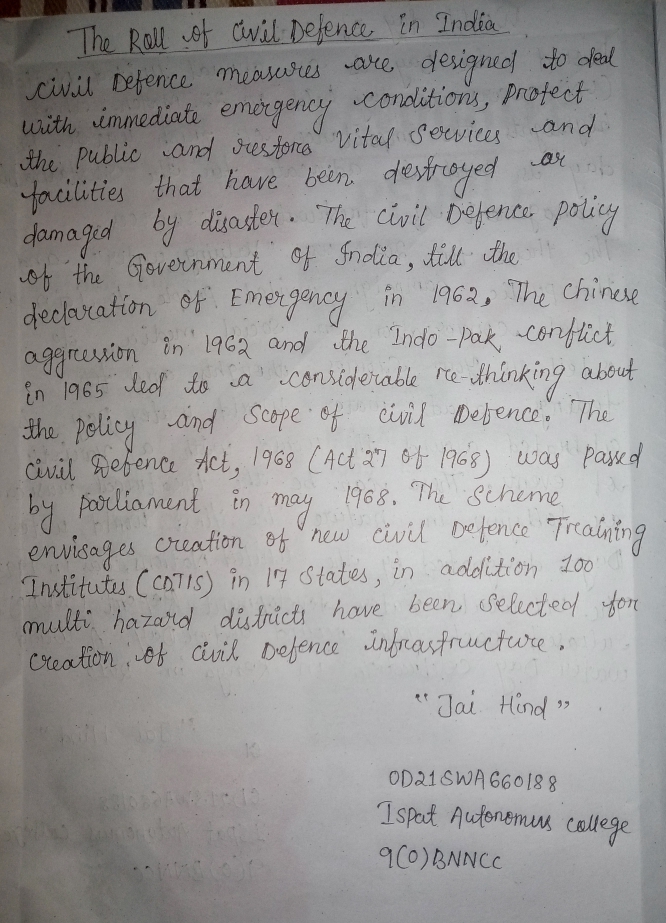 The Roll of Civil Defence in India
civil Defence measures are designed to deal
with immediate emergency conditions, Protect
the Public and restore Vital Services and
facilities that have been destroyed or
damaged by disaster. The civil Defence policy
of the Government of India, till the
declaration of Emergency in 1962, The chinese
aggression in 1962 and the Indo-Pak conflict
in 1965 led to a considerable re-thinking about
the policy and Scope of civil Defence. The
civil Defence Act, 1968 (Act 27 of 1968) was passed
by parliament in may 1968. The Scheme
envisages creation of new civil Defence Training
Institutes (CDTIS) in 17 States, in addition 100
multi hazard districts have been Selected for
Creation of civil Defence infrastructure.
"Jai Hind"
OD21SWA660188
Ispat Autonomus college
9(O)BNNCC